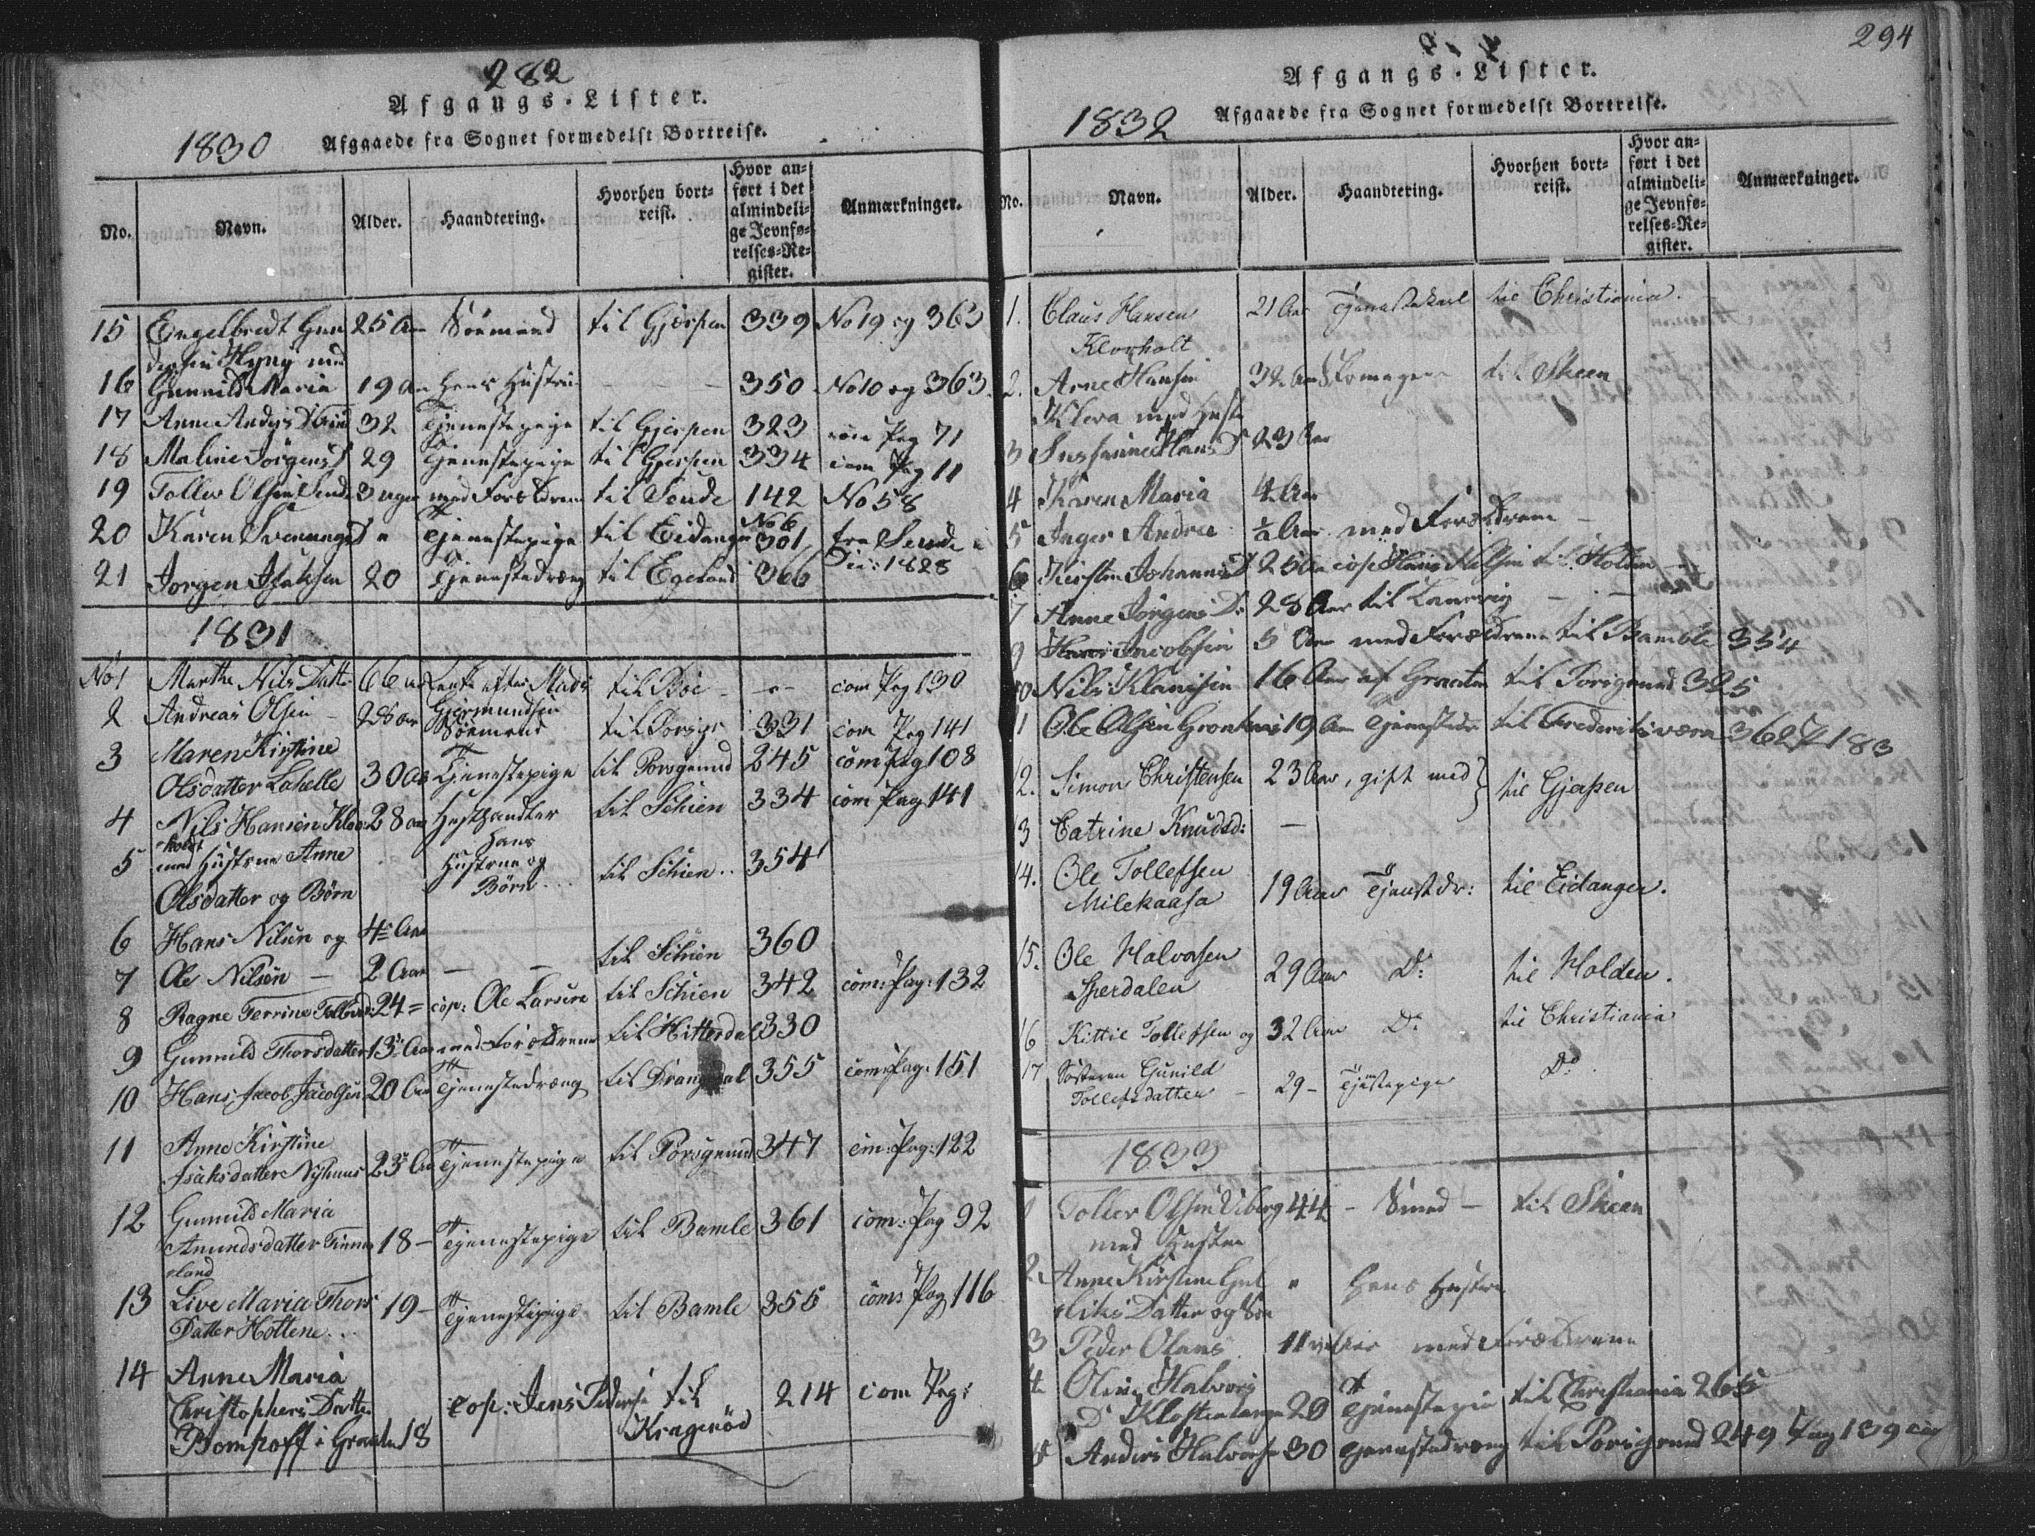 282
Afgangs-Lister.
1830 Afgaaede fra Sognet formedelst Bortreise.
No. Navn. Alder. Haandtering. Hvorhen bortreist. Hvor anført i det almindelige Jevnførelses-Register. Anmærkninger.
15 Engelbredt Gun 25 Aar Sömand til Gjerpen 339 No 19 og 363
16 Gunnild Maria 19 Aar hans Hustrue — — — 350 No 10 og 363
17 Anne Anders D 32 Tjenestepige til Gjerpen 323 Pag 71
18 Maline Jörgens D 29 Tjenestepige til Gjerpen 334 com Pag 11
19 Tollev Olsen 3 uger med Forældrene til 142 No 58
20 Karen Tjenestepige til Eidanger No 6 301 fra
21 Jörgen Isaksen 20 Tjenestedræng til Egeland 366 Din: 1828
1831
No 1 Marthe Nils Datter 66 Enke efter Mads til Böe - - - com Pag 130
Gjermundsen
2 Andreas Olsen — 28 aar Sömand til Porsgr 331 com Pag 141
3 Maren Kirstine
Olsdatter Lahelle 30 Aar Tjenestepige til Porsgrund 245 com Pag 108
4 Nils Hansen Klov 28 aar Hesthandler til Schien 334 com Pag 141
holt
5 med Hustrue Anne Hans Hustrue og til Schien.. 354
Olsdatter og Börn Börn...
6 Hans Nilsen og 4 Aar til Schien 360
7 Ole Nilsen — 2 Aar — — til Schien 342 com: Pag: 132
8 Ragne Terrine 24 = cop: Ole Larsen
9 Gunnild Thorsdatter 13 Aar med Forældrene til Hitterdal 330
10 Hans Jacob Jacobsen 20 Aar Tjenestedræng til Drangdal 355 com: Pag: 151
11 Anne Kirstine
Isaksdatter Nyhuus 23 Aar Tjenestepige til Porsgrund 347 com: Pag: 122
12 Gunnild Maria
Amundsdatter Finne 18 — Tjenestepige til Bamle 361 com: Pag 92
sland
13 Live Maria Thors 19 — Tjenestepige til Bamle 355 com: Pag 116
Datter Hottene...
14 Anne Maria
Christophers Datter cop: Jens Peders: til 214 com Pag:
i Graaten 18 Kragerød
294
Afgangs-Lister.
1832 Afgaaede fra Sognet formedelst Bortreise.
No. Navn. Alder. Haandtering. Hvorhen bortreist. Hvor anført i det almindelige Jevnførelses-Register. Anmærkninger.
1. Claus Hansen 21 Aar Tjenestekarl til Christiania.
Klovholt
2. Arne Hansen 32 Aar Skomager til Skeen
Kleva med Hustr
3 Susanne Hans D 23 Aar
4 Karen Maria 4 Aar
5 Inger Andrea ½ Aar med Forældrene —
6 Kirsten Johannes D 25 Aar cop Hans Nilsen til Holden —
7 Anne Jörgens D: 28 Aar til Laurvig — —
9 Jacobsen 5 Aar med Forældrene til Bamble 334
10 Nils Klausen 16 Aar af Graaten til Porsgrund 325
11 Ole Olsen 19 Aar Tjenestedr til Frederiksværn 362 P 183
12. Simon Christensen 23 Aar, gift med } til Gjerpen
13 Catrine Knudsd: —
14. Ole Tollefsen
Milekaasa 19 Aar Tjenestdr: til Eidanger.
15. Ole Halvorsen
Sperdalen 29 Aar D: til Holden.
16 Kittil Tollefsen og 32 Aar D: til Christiania
17 Søsteren Gunild
Tollefsdatter — 29 — Tjenstepige D:
1833
1 Toller Olsen Viberg 44 — Smed — til Skeen
med Hustru
2 Anne Kirstine Gul " hans Hustru
Datter og Søn
3 Peder Olaus 11 Aar med Forældrene
4 Oline Halvors
D: Klosterlangen 20 Tjenestepige til Christiania 265
5 Anders Halvors 30 Tjenestedræng til Porsgrund 249 Pag 139